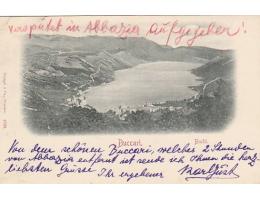 verspätet in Abbazia aufgegeben!
Buccari.
Von dem schönen Buccari, welches 2 Stunden
von Abbazia entfernt ist sende ich Ihnen die herz-
liebsten Grüsse Ihr ergebener